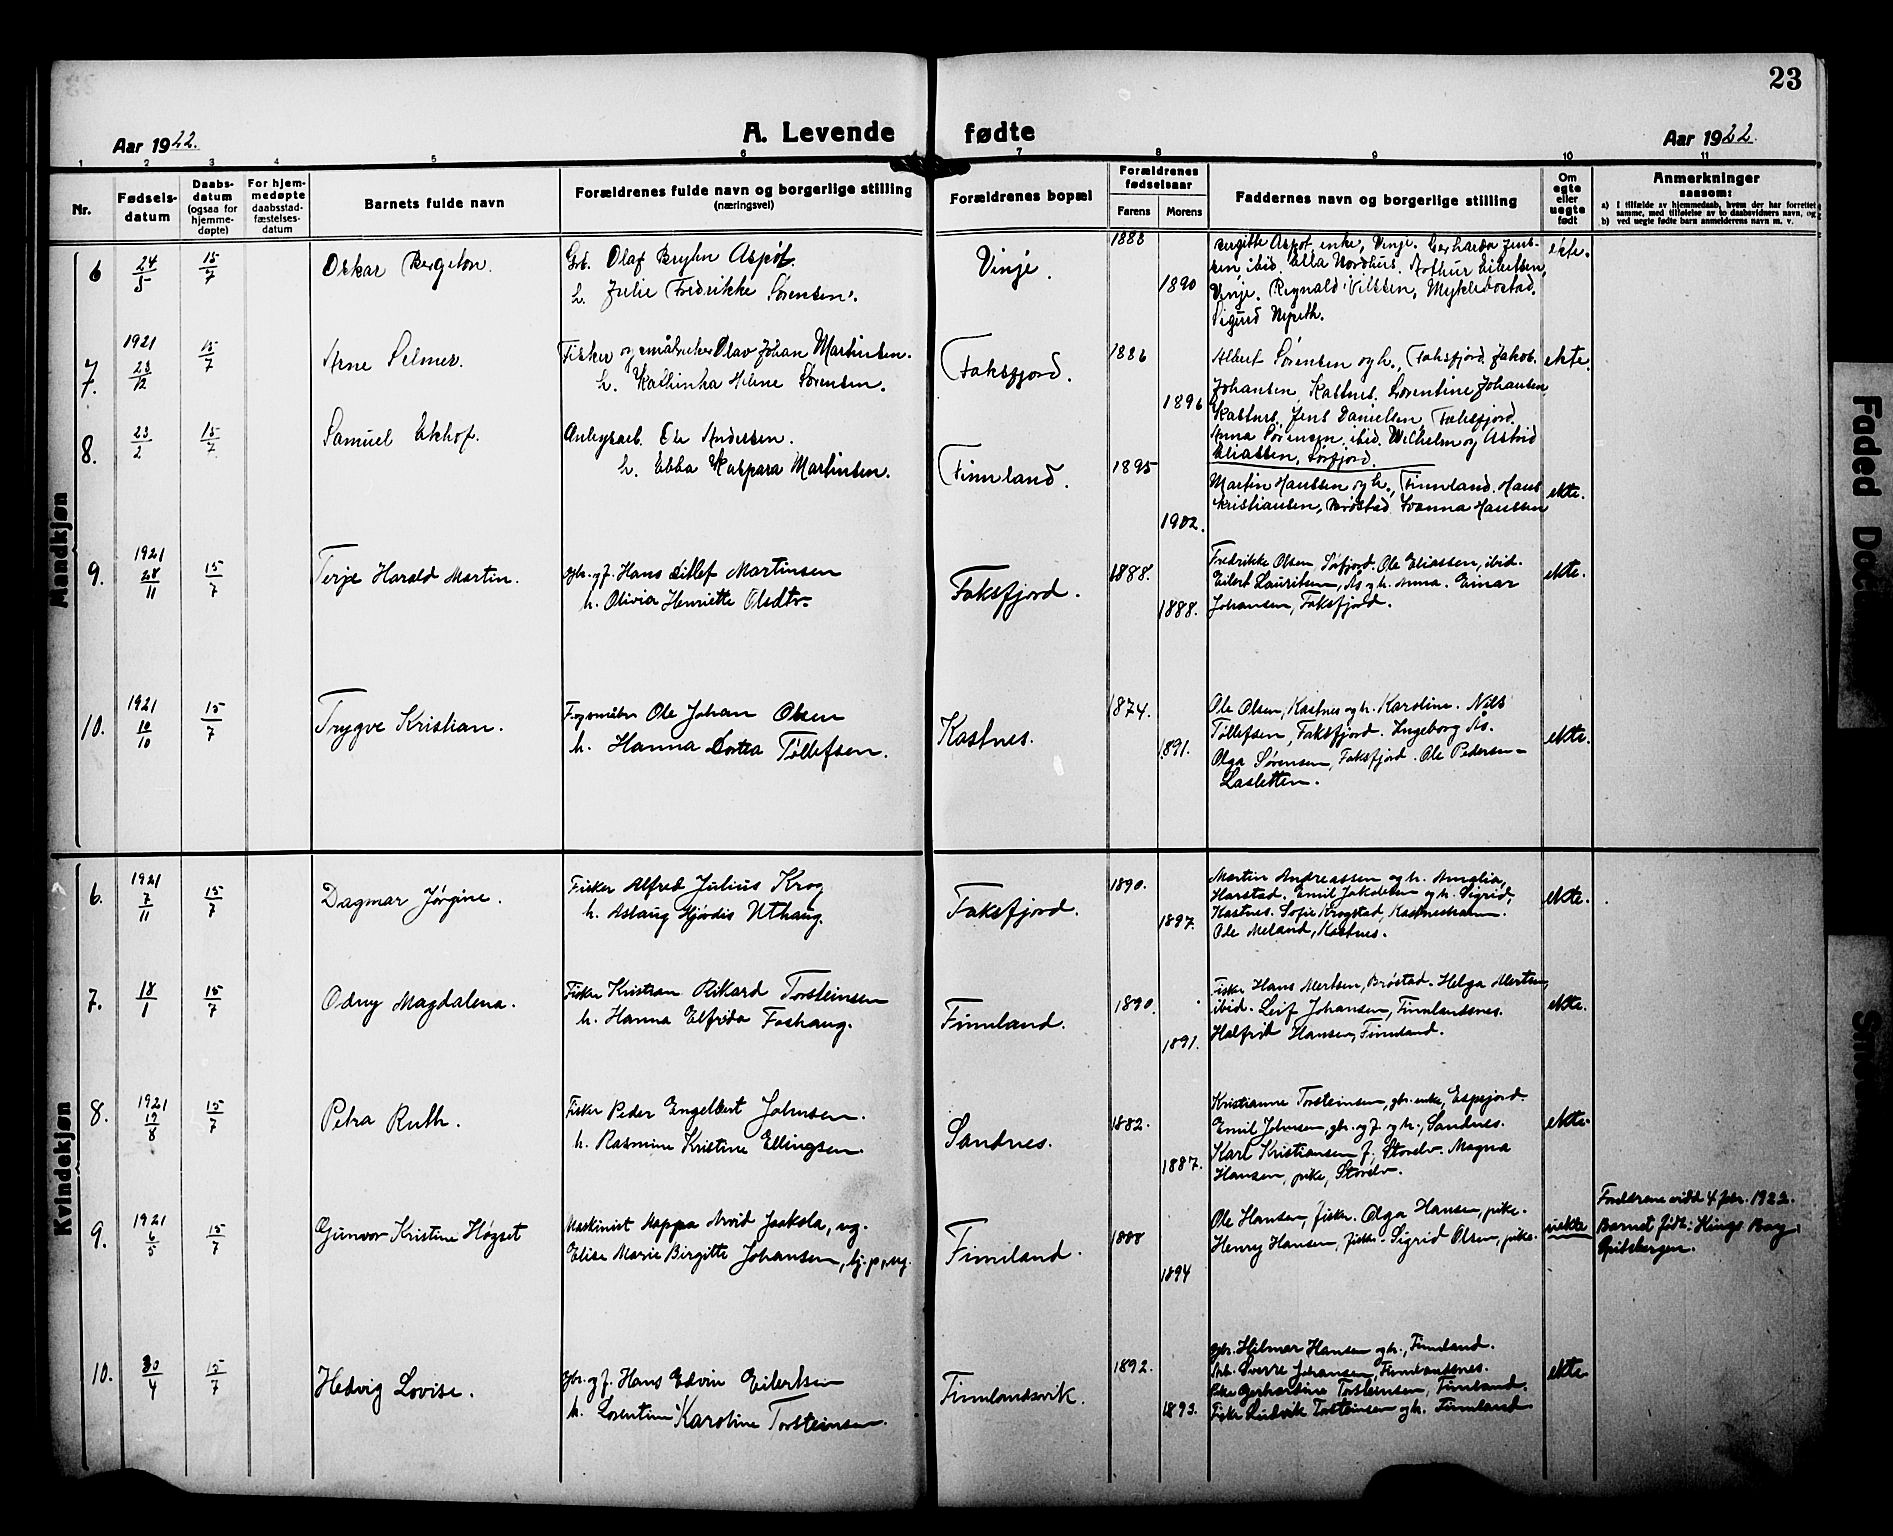 23
Aar 1922.
A. Levende fødte
Aar 1922.
1 2 3 4 5 6 7 8 9 10 11
Nr.
Fødsels-
datum
Daabs-
datum
(ogsaa for
hjemme-
døpte)
For hjem-
medøpte
daabsstad-
fæstelses-
datum
Barnets fulde navn
Forældrenes fulde navn og borgerlige stilling
(næringsvei)
Forældrenes bopæl
Forældrenes
fødselsaar
Farens
Morens
Faddernes navn og borgerlige stilling
Om
egte
eller
uegte
født
Anmerkninger
saasom:
a) I tilfælde av hjemmedaab, hvem der har forrettet
samme, med tilføielse av to daabsvidners navn, og
b) ved uegte fødte barn anmelderens navn m. v.
Mandkjøn
6
24/5
15/7
Oskar Bergeton.
Grb. Olaf Bryhn Aspøt.
h. Julie Fredrikke Sørensen.
Vinje.
1888
1890
Birgitte Aspøt, enke, Vinje. Gerharda Jens-
sen, ibid. Ella Nordhus. Arthur Eilertsen,
Vinje. Reynald Nilssen, Myklebostad.
Sigurd Nyseth.
ekte.
7.
1921
23/12
15/7
Arne Selmer.
Fisker og småbruker Olav Johan Martinsen.
h. Kathinka Helene Sørensen.
Faksfjord.
1886
1896
Albert Sørensen og h., Faksfjord. Jakob
Johansen, Kastnes. Lorentine Johansen
Kastnes. Jens Danielsen, Faksfjord.
Anna Sørensen, ibid. Wilhelm og Astrid
Eliassen, Sørfjord.
ekte.
8.
23/2
15/7
Samuel Ekhof.
Anlegsarb. Ole Andersen.
h. Ebba Kaspara Martinsen.
Finnland.
1895
1902.
Martin Hanssen og h., Finnland. Hans
Kristiansen, Brøstad. Joanna Hanssen
ekte.
9.
1921
28/11
15/7
Terje Harald Martin.
gbr. g f. Hans Ditlef Martinsen
h. Olivia Henriette Olsdtr.
Faksfjord.
1888.
1888.
Fredrikke Olsen Søfjord. Ole Eliassen, ibid.
Eilert Lauritsen, As og h. Anna. Einar
Johansen, Faksfjord.
ekte.
10.
1921
10/10
15/7
Trygve Kristian.
F. og småbr. Ole Johan Olsen
h. Hanna Dortea Tøllefsen.
Kastnes.
1874.
1891.
Ole Olsen, Kastnes og h. Karoline. Nils
Tøllefsen, Faksfjord. Ingeborg As.
Olga Sørensen, Faksfjord. Ole Pedersen
Lasletten.
ekte.
Kvindekjøn
6.
1921
7/11
15/7
Dagmar Jørgine.
Fisker Alfred Julius Krog
h. Aslaug Hjørdis Uthaug.
Faksfjord.
1890.
1897.
Martin Andreassen og h. Amalia,
Harstad. Emil Jakobsen og h. Sigrid,
Kastnes. Sofie Krogstad, Kastneshamn.
Ole Meland, Kastnes.
ekte.
7.
18/1
15/7
Odny Magdalena.
Fisker Kristian Rikard Torsteinsen
h. Hanna Elfrida Foshaug.
Finnland.
1890.
1891.
Fisker Hans Mertsen, Brøstad. Helga Mertsen,
ibid. Leif Johansen, Finnlandsnes.
Halfrid Hansen, Finnland.
ekte.
8.
1921
12/8
15/7
Petra Ruth.
Fisker Peder Engelbert Johnsen.
h. Rasmine Kristine Ellingsen.
Sandnes.
1882.
1887.
Kristianne Torsteinsen, gbr. enke, Espejord.
Emil Johnsen, gbr. og f. og h., Sandnes.
Karl Kristiansen f., Storelv. Magna
Hansen, pike, Storelv.
ekte.
9.
1921
6/5
15/7
Gunvor Kristine Høgset
Maskinist Mappa Arvid Jaakola, ug.
Elise Marie Birgitte Johansen, tj. p., ug.
Finnland.
1888
1894
Ole Hansen, fisker. Olga Hansen, pike.
Henry Hansen, fisker. Sigrid Olsen, pike.
uekte
Foreldrene viedd 4 febr. 1922.
Barnet født: Kings Bay,
Spitsbergen.
10.
30/4
15/7
Hedvig Lovise.
gbr. g f. Hans Edvin Eilertsen
h. Lorentine Karoline Torsteinsen.
Finnlandsvik.
1892.
1893.
gbr. Hilmar Hansen og h., Finnland.
Arb. Sverre Johansen, Finnlandsnes.
Pike Gerhardine Torsteinsen, Finnland.
Fisker Ludvik Torsteinsen og h. Finnland
ekte
Faded Doc